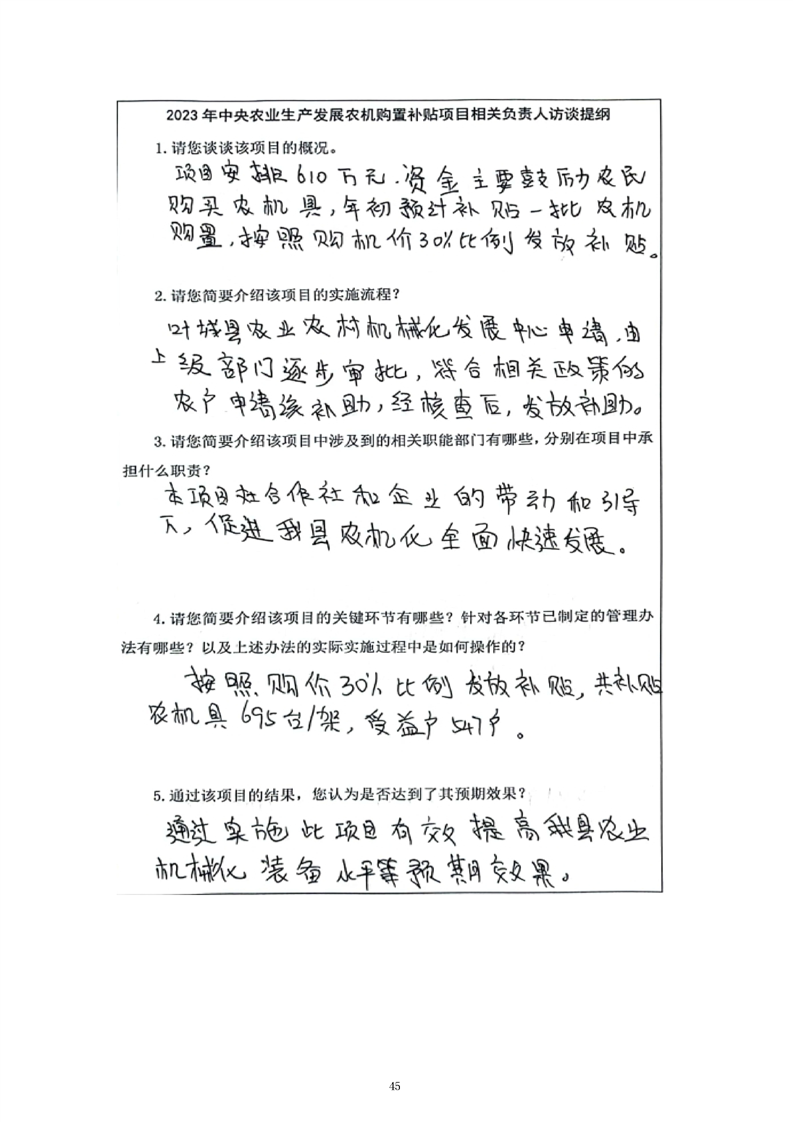 2023年中央农业生产发展农机购置补贴项目相关负责人访谈提纲
1.请您谈谈该项目的概况。
项目安排610万元.资金主要鼓励农民
购买农机具,年初预计补贴一批农机
购置,按照购机价30%比例发放补贴。
2.请您简要介绍该项目的实施流程?
叶城县农业农村机械化发展中心申请,由
上级部门逐步审批,符合相关政策的
农户申请该补助,经核查后,发放补助。
3.请您简要介绍该项目中涉及到的相关职能部门有哪些,分别在项目中承
担什么职责?
本项目在合作社和企业的带动和引导
下,促进我县农机化全面快速发展。
4.请您简要介绍该项目的关键环节有哪些?针对各环节已制定的管理办
法有哪些?以及上述办法的实际实施过程中是如何操作的?
按照购价30%比例发放补贴,共补贴
农机具695台/架,受益户547户。
5.通过该项目的结果,您认为是否达到了其预期效果?
通过实施此项目有效提高我县农业
机械化装备水平等预期效果。
45